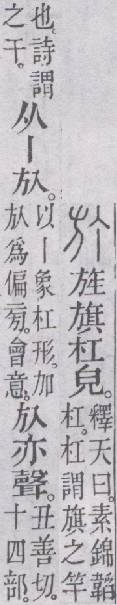 旌旗杠皃。釋天曰。素錦韜杠。杠謂旗之竿
也。詩謂之干。从丨㫃。以丨象杠形。加㫃爲偏旁。會意。㫃亦聲。丑善切。十四部。